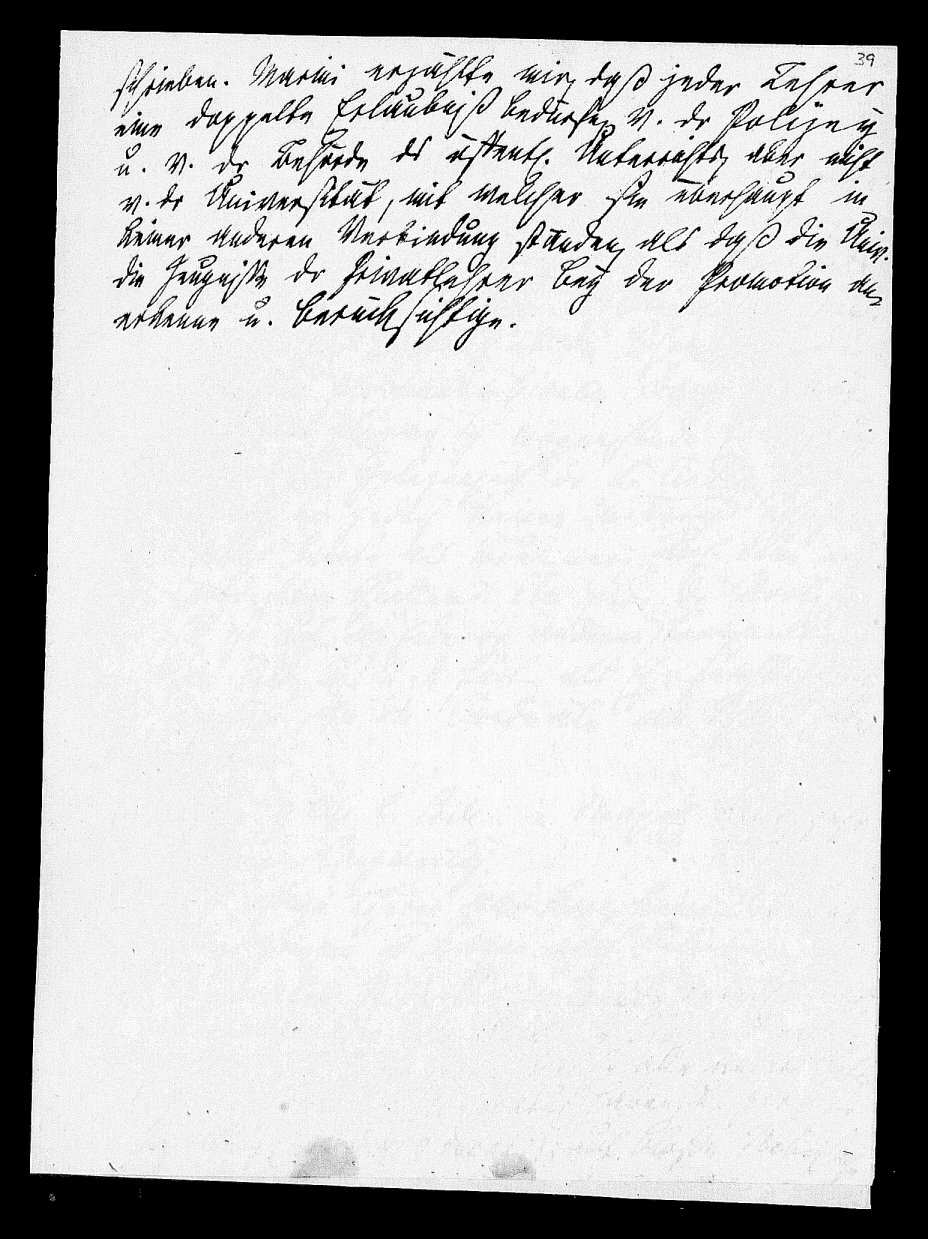 39
schrieben. Marini erzählte mir, daß jeder Lehrer
eine doppelte Erlaubniß bedürfe, v. dr Polizey
u. v. dr Behörde ds öffentl. Unterrichts, aber nicht
v. dr Universität, mit welcher sie überhaupt in
keiner anderen Verbindung ständen, als daß die Univ.
die Zeugnisse dr Privatlehrer bey der Promotion an=
erkenne u. berücksichtige.